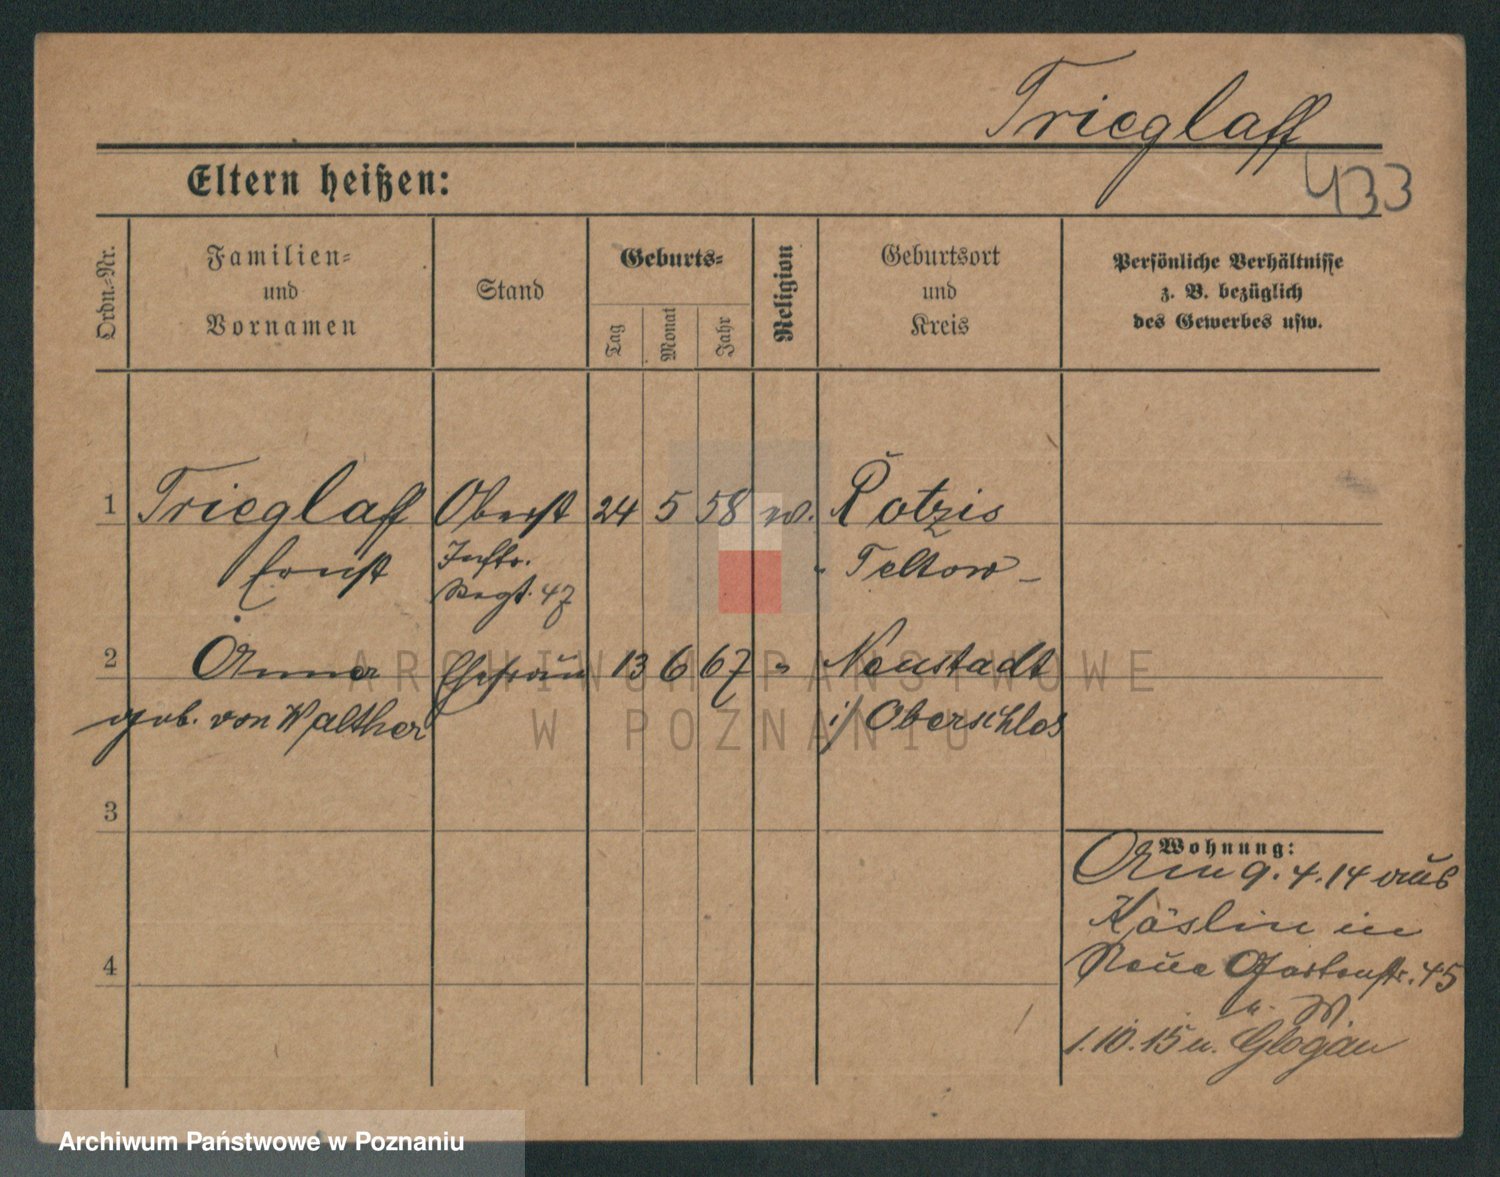 Trieglaff
433
Eltern heißen:
Ordn.-Nr.
Familien-
und
Vornamen
Stand
Geburts-
Tag
Monat
Jahr
Religion
Geburtsort
und
Kreis
Persönliche Verhältnisse
z. B. bezüglich
des Gewerbes usw.
1 Trieglaff Oberst 24 5 58 Rotzis
Ernst Inftr. Regt. 47 Teltow
2 Anna Ehefrau 13 6 67 " Neustadt
geb. von Walther i/ Oberschles
3
Wohnung:
9.4.14 aus
Köslin in
4
Neue Gartenstr. 45
1.10.15 n. Glogau
ARCHIWUM PAŃSTWOWE
W POZNANIU
Archiwum Państwowe w Poznaniu